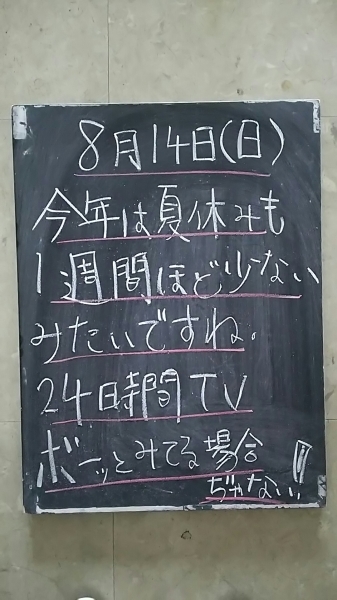 8月14日(日)
今年は夏休みも
1週間ほど少ない
みたいですね。
24時間TV
ボーッとみてる場合
ぢゃない!